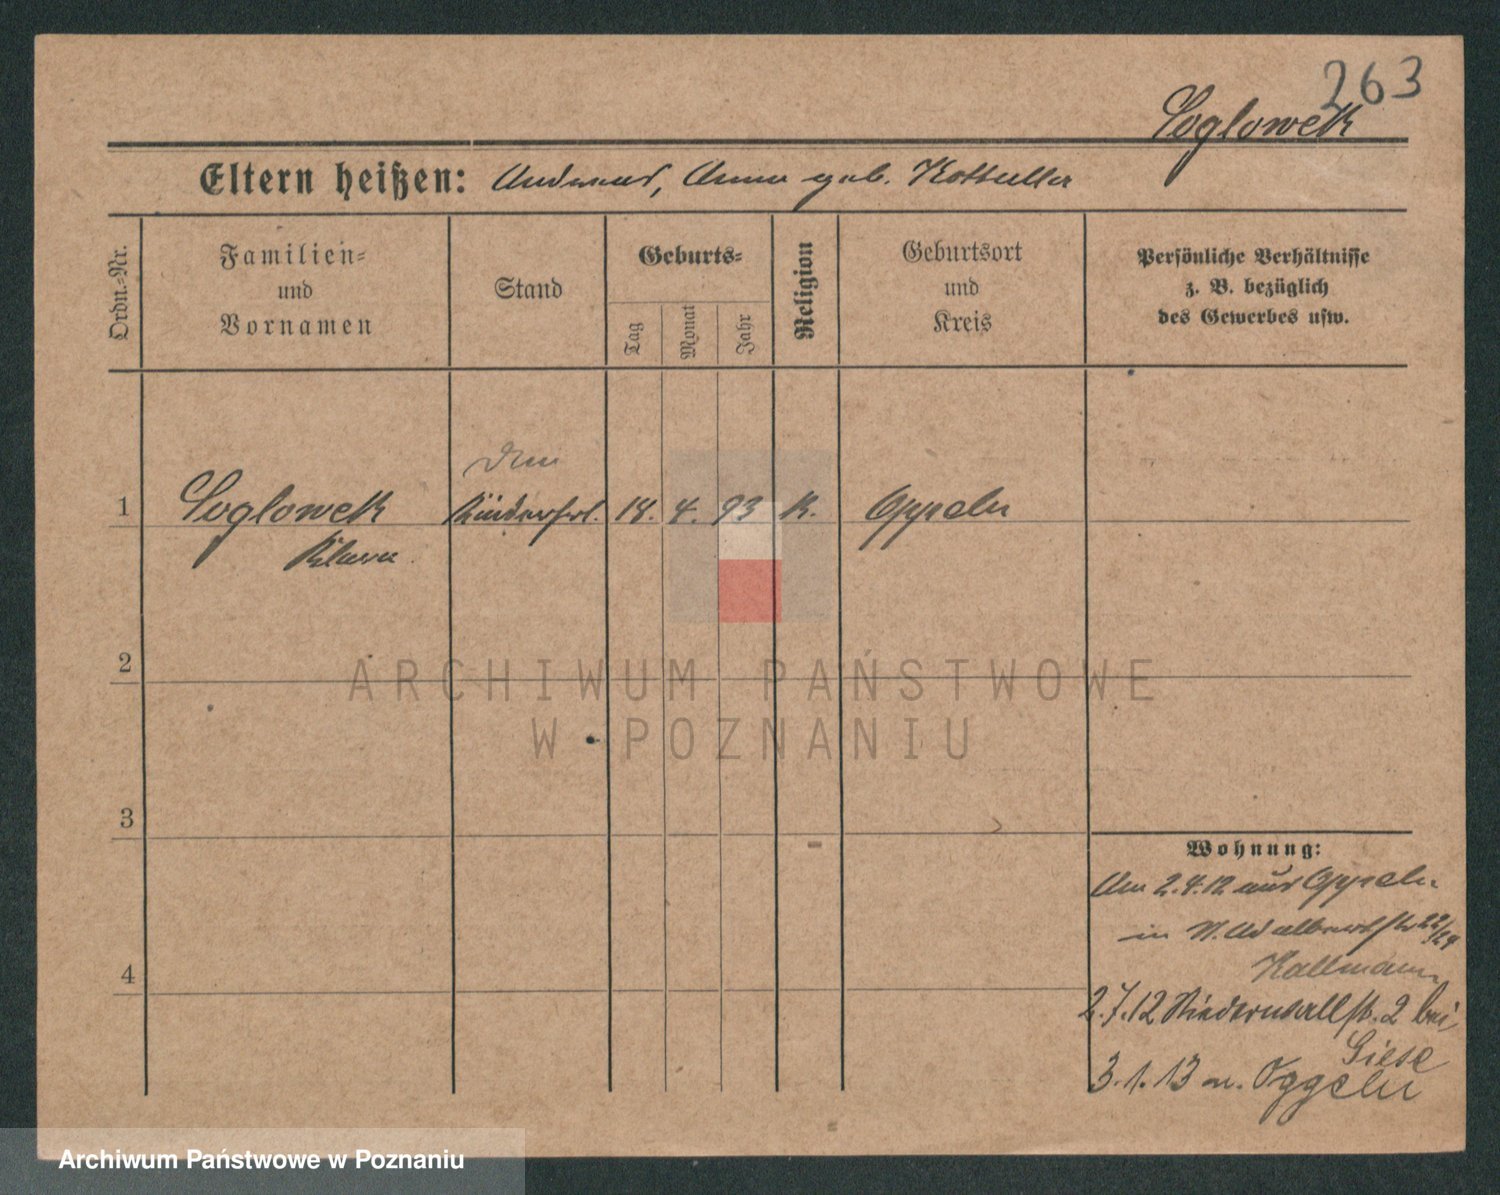 263
Soglowek
Eltern heißen: Andreas, Anna geb. Kottulla
Ordn.-Nr.
Familien-
und
Vornamen
Stand
Geburts-
Tag
Monat
Jahr
Religion
Geburtsort
und
Kreis
Persönliche Verhältnisse
z. B. bezüglich
des Gewerbes usw.
1
Soglowek
Klara
Kinderfrl.
18. 4. 93
K.
Oppeln
2
ARCHIWUM PAŃSTWOWE
W POZNANIU
3
4
Wohnung:
Am 2.4.12 aus Oppeln
in St. Adalbertstr
Kallmann
2.7.12 Niederwallstr. 2 bei
Giese
3.1.13 n. Oppeln
Archiwum Państwowe w Poznaniu